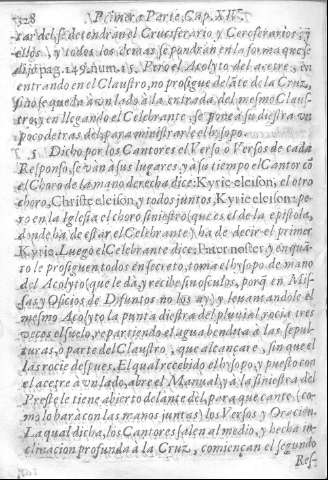 328 Primera Parte, Cap. XIV.
rar del, se detendràn el Cruceferario y Ceroferarios; y
ellos, y todos los demas se pondràn en la forma que se
dijo pag. 149. num. 15. Pero el Acolyto del acetre, en
entrando en el Claustro, no prosigue delàte de la Cruz,
sino se queda à un lado à la entrada del mesmo Claus-
tro; y en llegando el Celebrante, se pone à su diestra un
poco detras del, para ministrarle el hysopo.
5 Dicho por los Cantores el Verso ò Versos de cada
Responso, se vàn à sus lugares, y à su tiempo el Cantor cõ
el Choro de la mano derecha dice: Kyrie eleison, el otro
choro, Christe eleison, y todos juntos, Kyrie eleison: pe-
ro en la Iglesia el choro siniestro (que es el de la epistola,
donde ha de estar el Celebrante) ha de decir el primer
Kyrie. Luego el Celebrante dice: Pater noster, y en quã-
to le prosiguen todos en secreto, toma el hysopo de mano
del Acolyto (que le dà, y recibe sin osculos, porq̃ en Mis-
sas, y Oficios de Difuntos no los ay) y levantandole el
mesmo Acolyto la punta diestra del pluvial, rocia tres
voces el suelo, repartiendo el agua bendita à las sepul-
turas, ò parte del Claustro, que alcançare, sin que el
las rocie despues. El qual recebido el hysopo, y puesto con
el acetre à un lado, abre el Manual, y à la siniestra del
Preste le tiene abierto delante dèl, para que cante (co-
mo lo harà con las manos juntas) los Versos y Oracion.
La qual dicha, los Cantores salen al medio, y hecha in-
clinacion profunda à la Cruz, comiençan el segundo
Res-